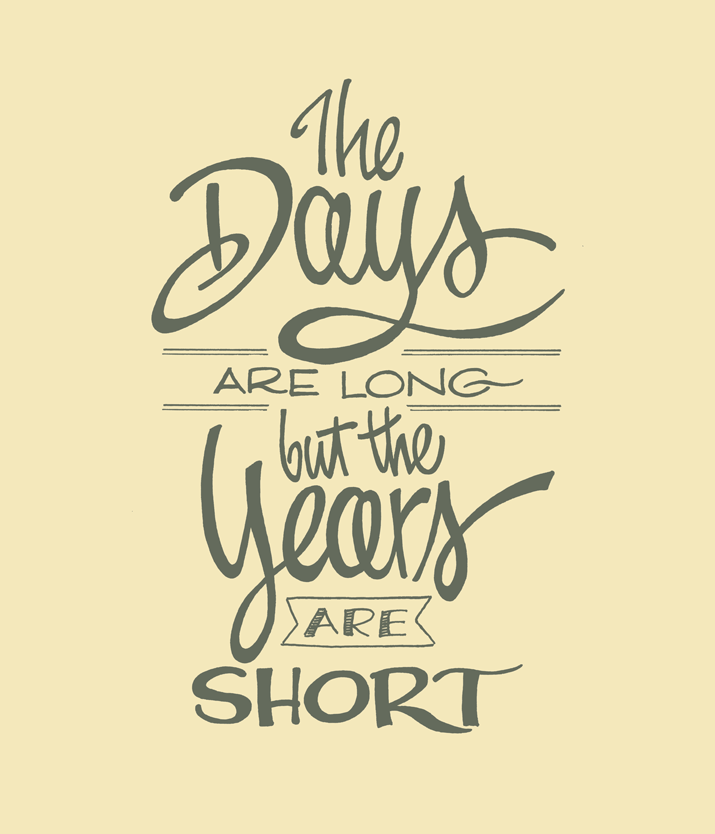 The
Days
ARE LONG
but the
Years
ARE
SHORT